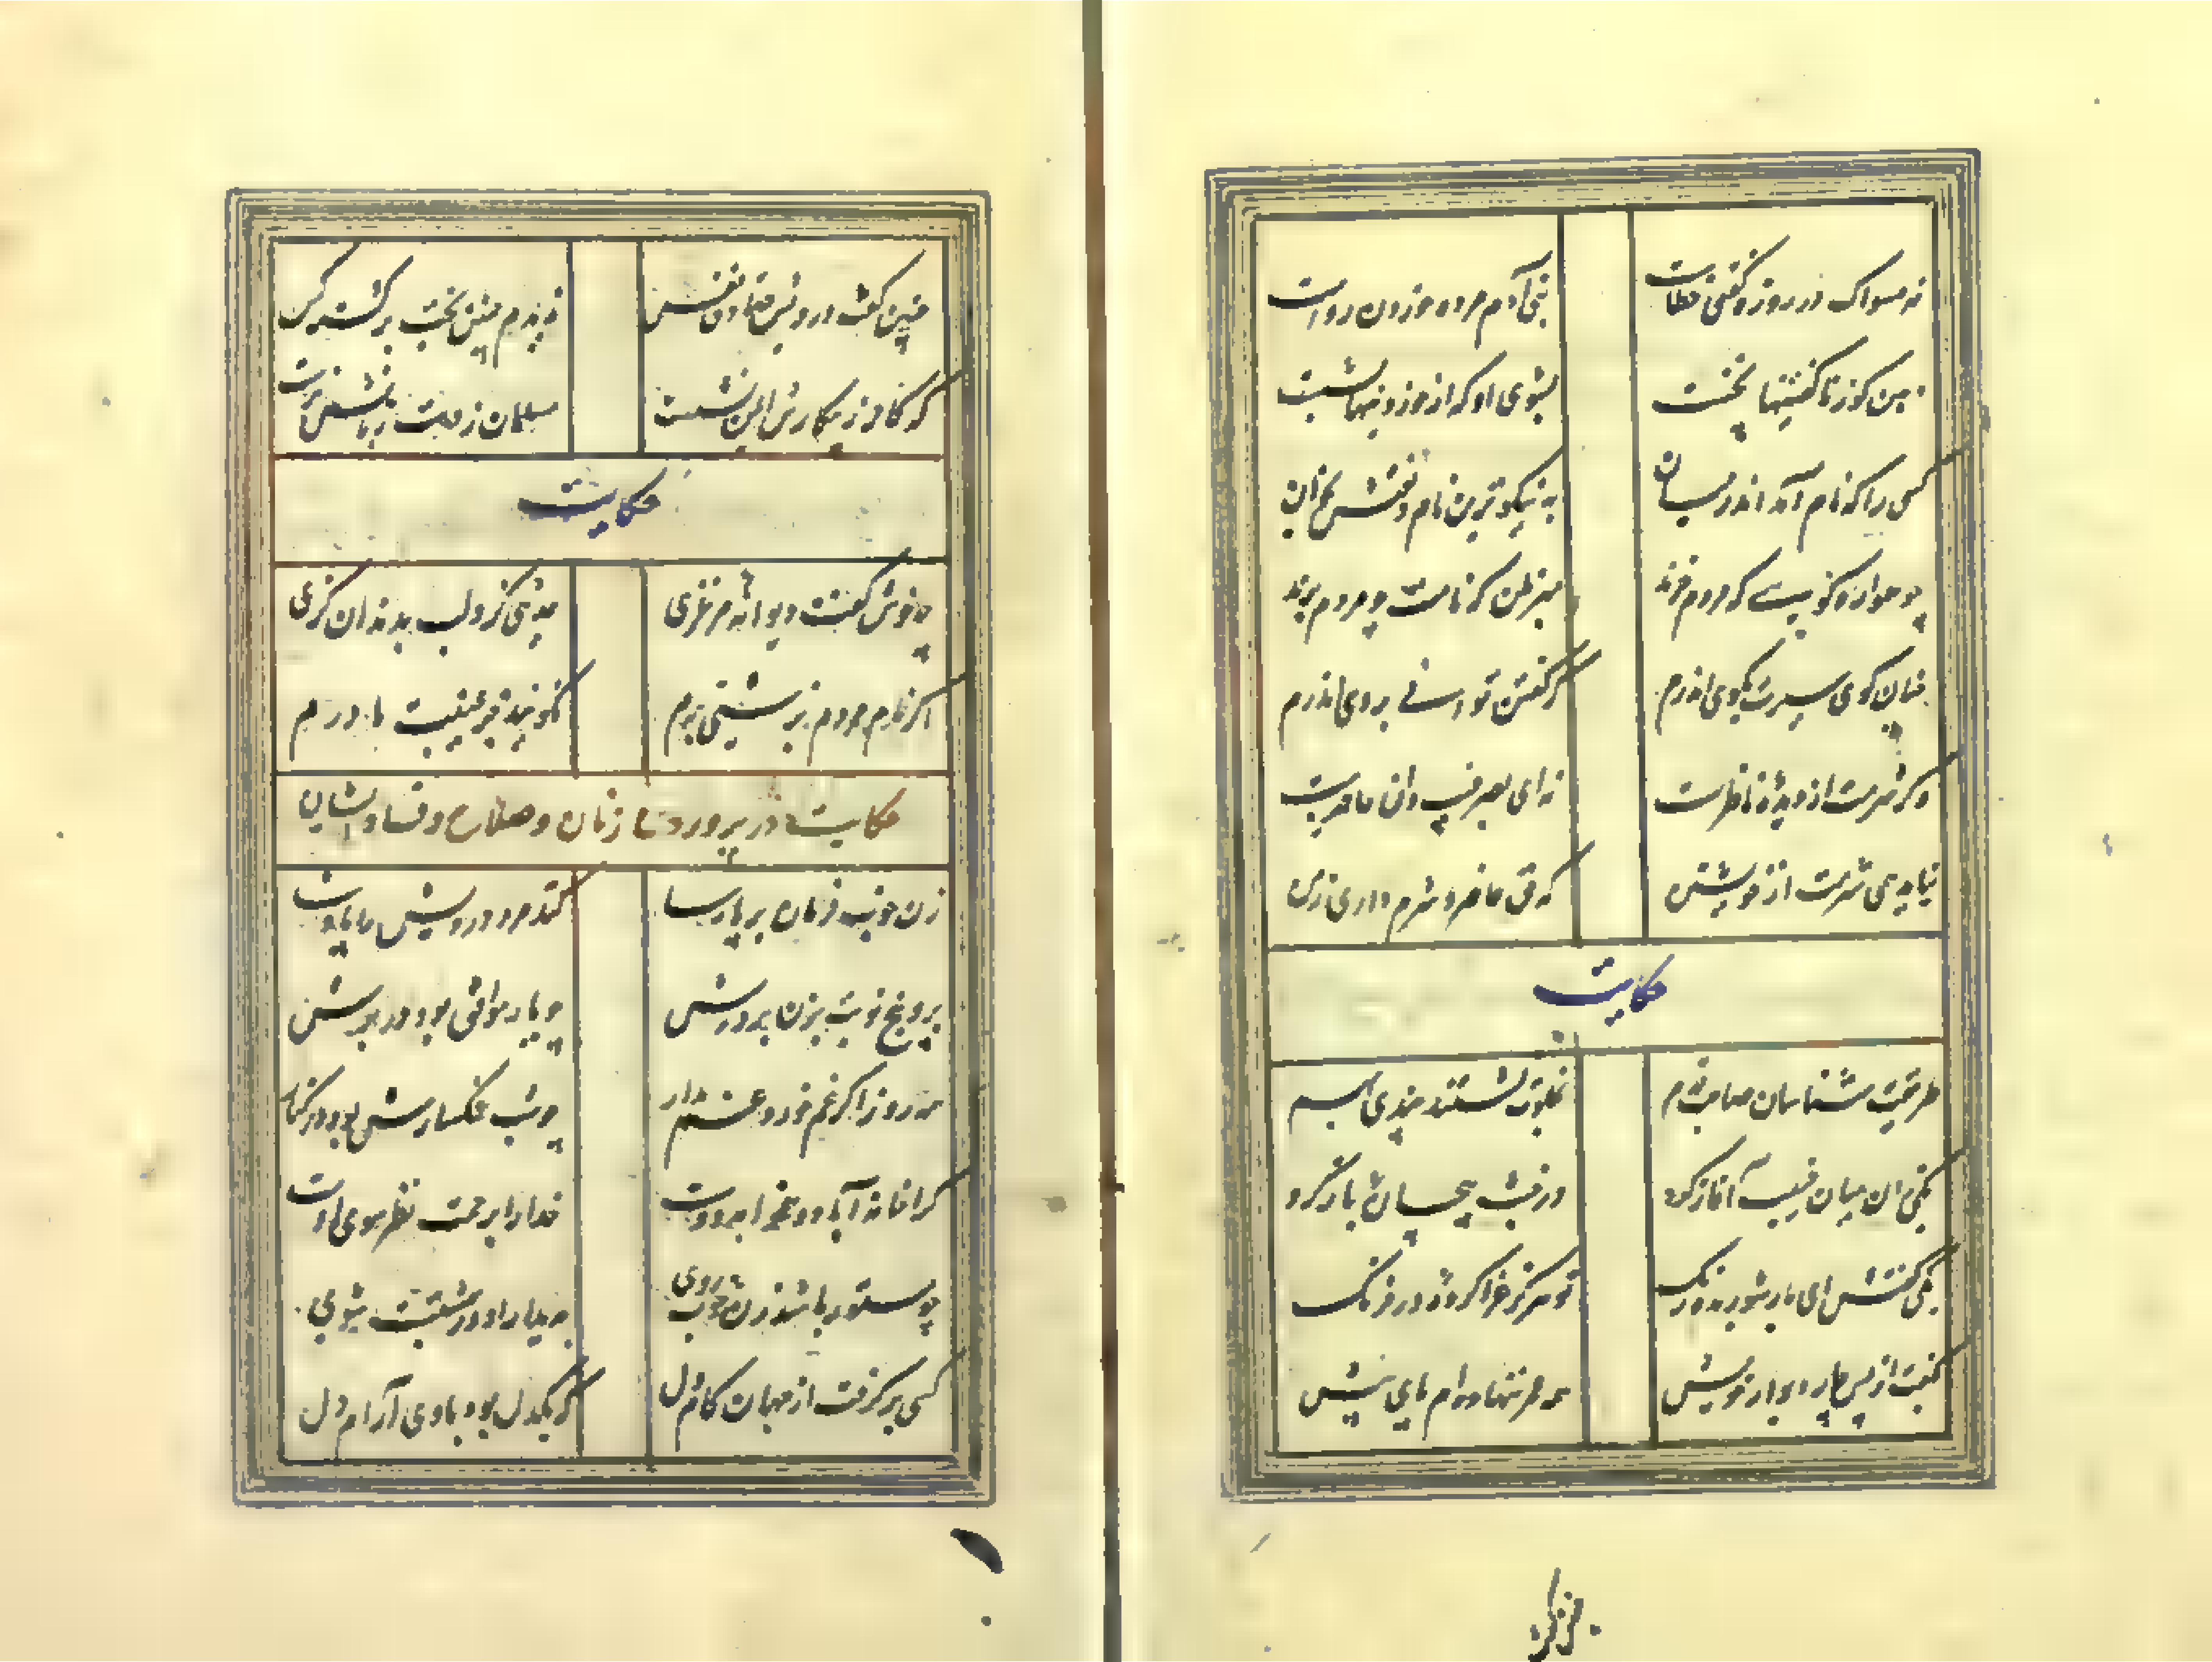 نه مسواک در روزه گفتی خطاست بنی آدم مرده خوردن رواست
دهن کو ز ناگفتنیها نخست بشوی او که از خوردنیها بشست
کسی را که نام آمد اندر میان به نیکوترین نام و نعتش بخوان
چو همواره گویی که مردم خرند مبر ظن که نامت چو مردم برند
چنان گوی سیرت بکوی اندرم که گفتن توانی بروی اندرم
وگر شرمت از دیده ناظرست نه ای بصر غیب دان حاضرست
نیاید همی شرمت از خویشتن که حق حاضر و شرم داری ز من
حکایت
طریقت شناسان ثابت قدم بخلوت نشستند چندی بهم
یکی زان میان غیبت آغاز کرد در غیبت بیچاره باز کرد
یکی گفتش ای یار شوریده رنگ تو هرگز غزا کرده در فرنگ
بگفت از پس چار دیوار خویش همه عمر ننهاده ام پای پیش
چنین گفت درویش صادق نفس ندیدم چنین بخت برگشته کس
که کافر ز پیکارش ایمن نشست مسلمان ز جور زبانش نرست
حکایت
چه خوش گفت دیوانه مرغزی حدیثی کزو لب بدندان گزی
اگر نام مردم بزشتی برم نگویم بجز غیبت مادرم
حکایت در پروردن زنان و صلاح و فساد ایشان
زن خوب فرمان بر پارسا کند مرد درویش را پادشا
برو پنج نوبت بزن بر درش چو یار موافق بود در برش
همه روز اگر غم خوری غم مدار چو شب غمگسارش بود در کنار
کرا خانه آباد و همخوابه دوست خدا را برحمت نظر سوی اوست
چو مستور باشد زن خوب روی به دیدار او در بهشتست شوی
کسی برگرفت از جهان کام دل که یکدل بود با وی آرام دل